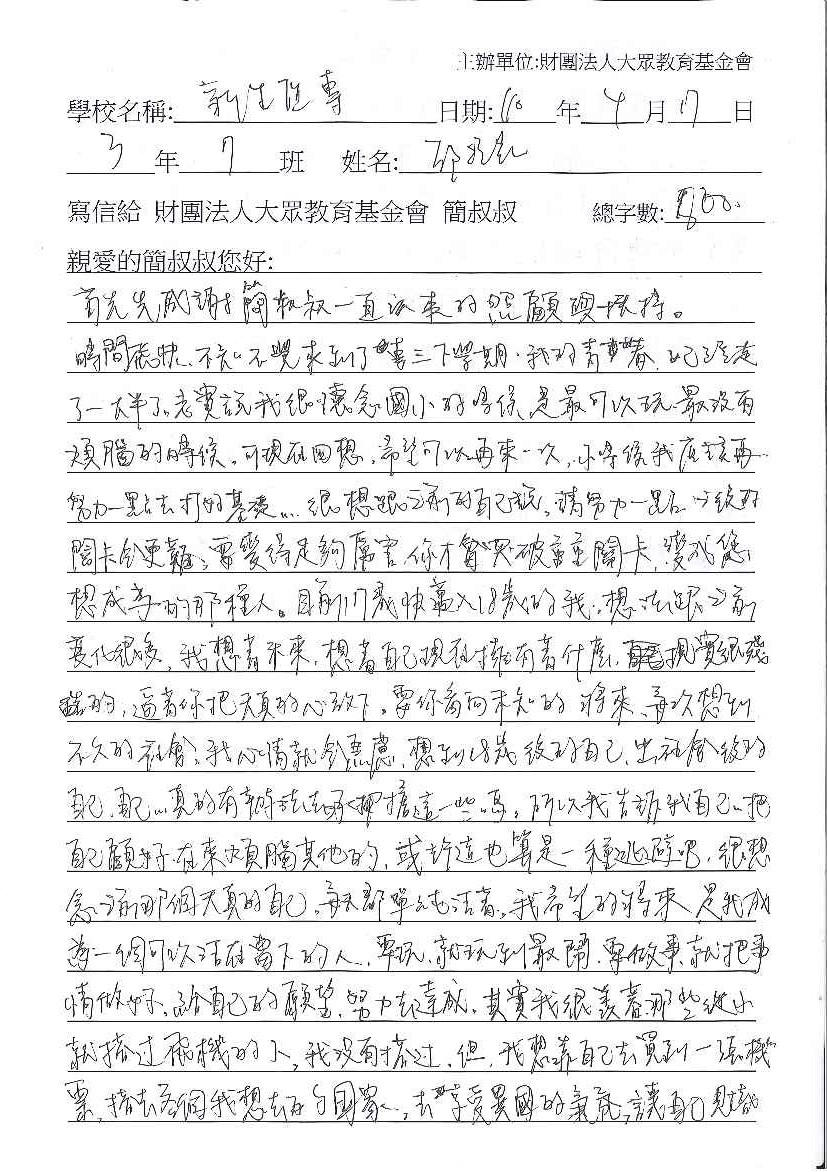 主辦單位:財團法人大眾教育基金會
學校名稱: 新生醫專 日期: 110 年 4 月 17 日
3 年 7 班 姓名: 邱
寫信給 財團法人大眾教育基金會 簡叔叔 總字數: 800.
親愛的簡叔叔您好:
首先先感謝簡叔叔一直以來的照顧與扶持。
時間飛快、不知不覺來到了專三下學期,我的青春,已經走
了一大半了。老實說我很懷念國小的時侯,是最可以玩,最沒有
煩腦的時侯。可現在回想,希望可以再來一次,小時後我應該再
努力一點去打好基礎...很想跟之前的自己說,請努力一點,以後的
關卡會更難,要變得足夠厲害,你才會突破重重關卡,變成您
想成為的那種人。目前17歲快邁入18歲的我,想法跟之前
變化很多,我想著未來,想著自己現在擁有著什麼,現實很殘
酷的,逼著你把天真的心放下,要你面向未知的將來、每次想到
不久的社會,我心情就會焦慮,想到18歲後的自己,出社會後的
自己,自己真的有辦法去承擔這一些嗎,所以我告訴我自己,把
自己顧好在來煩腦其他的,或許這也算是一種逃避吧,很想
念之前那個天真的自己,每天都單純活著,我希望的將來,是我成
為一個可以活在當下的人,要玩,就玩到最開,要做事,就把事
情做好,給自己的願望,努力去達成,其實我很羨慕那些從小
就搭过飛機的人,我沒有搭过,但,我想靠自己去買到一張機
票,搭去各個我想去的國家,去享受異國的氣氛,讓自己